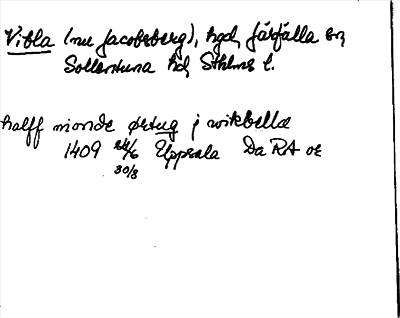 Vibla (nu Jacobsberg), hgd, Järfälla sn,
Sollentuna hd, Sthlms l.
halff nionde ørtug j wikbella
1409 24/6 Uppsala Da RA or
30/8